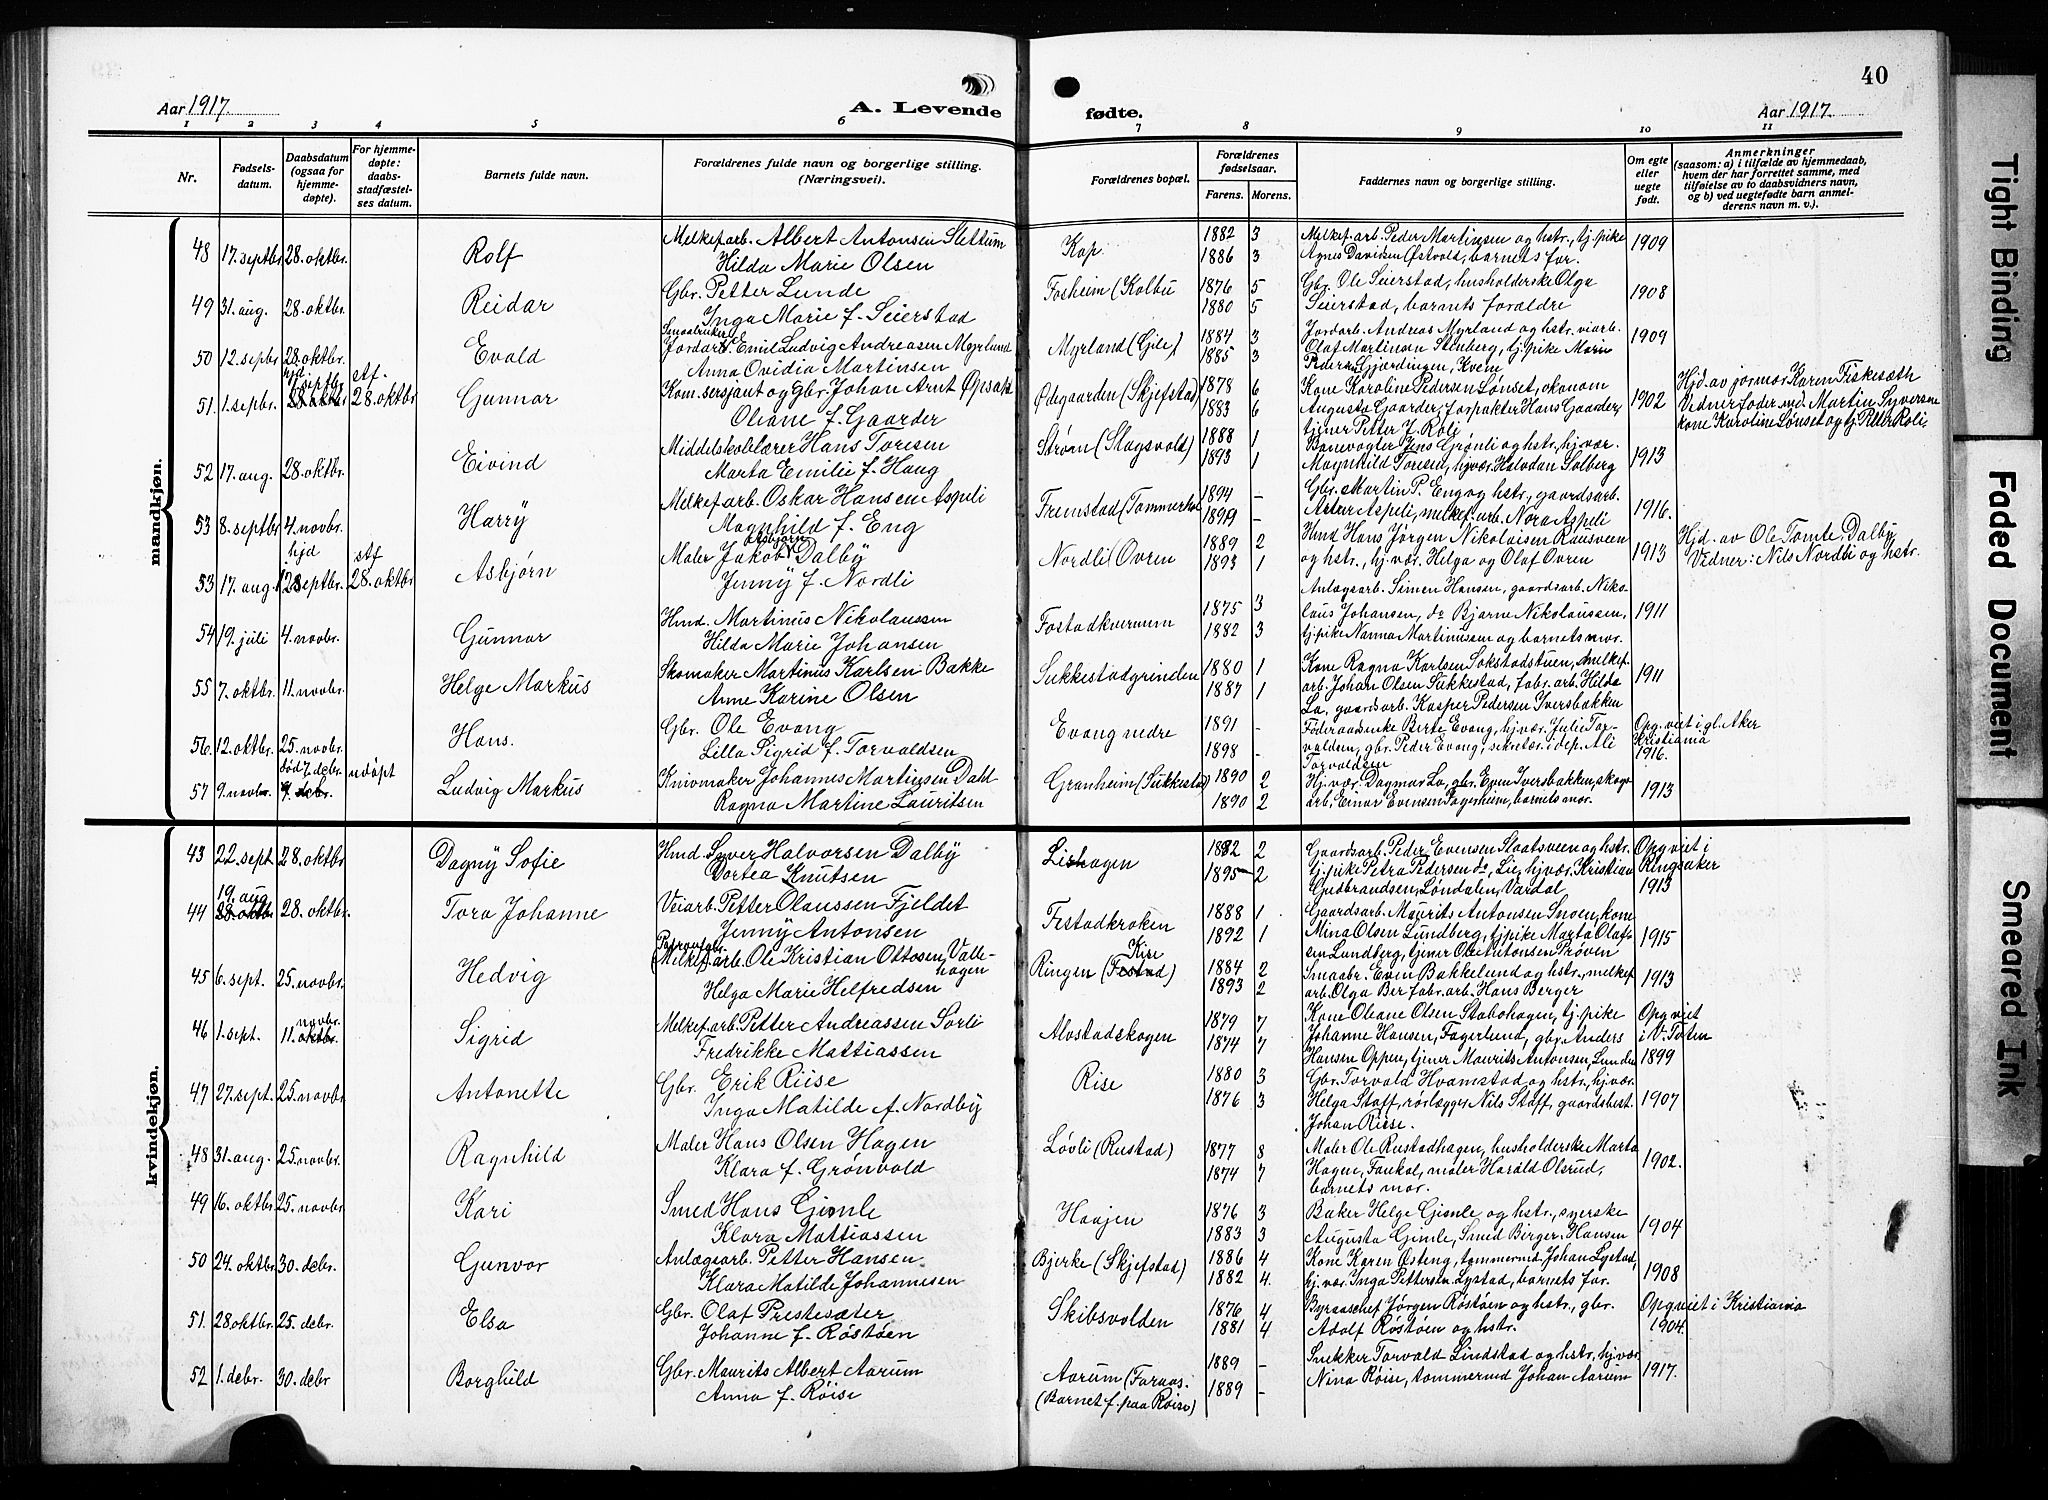 40
Aar 1917.
A. Levende
fødte.
Aar 1917.
1 2 3 4 5 6 7 8 9 10 11
Nr.
Fødsels-datum.
Daabsdatum (ogsaa for hjemme-døpte).
For hjemme-døpte: daabs-stadfæstel-ses datum.
Barnets fulde navn.
Forældrenes fulde navn og borgerlige stilling. (Næringsvei).
Forældrenes bopæl.
Forældrenes fødselsaar.
Farens. Morens.
Faddernes navn og borgerlige stilling.
Om egte eller uegte født.
Anmerkninger (saasom: a) i tilfælde av hjemmedaab, hvem der har forrettet samme, med tilføielse av to daabsvidners navn, og b) ved uegtefødte barn anmel-derens navn m. v.).
mandkjøn.
48 17. septbr 28. oktbr. Rolf Melkef.arb. Albert Antonsen Slettum Kap. 1882 3 Melkef.arb. Peder Martinsen og hstr., tj.pike 1909
Hilda Marie Olsen 1886 3 Agnes Davidsen Østvold, barnets far.
49 31. aug. 28. oktbr. Reidar Gbr. Petter Lunde Fosheim (Kolbu 1876 5 Gbr. Ole Seierstad, husholderske Olga 1908
Inga Marie f. Seierstad 1880 5 Seierstad, barnets foraldre
Smaabruker
50 12. sepbr 28. oktbr. Evald Jordarb. Emil Ludvig Andreasen Myrlund Myrland (Gile) 1884 3 Jordarb. Andreas Myrland og hstr. viarb. 1909
Anna Ovidia Martinsen 1885 3 Olaf Martinsen Stenberg, tj.pike Marin
Pedersen Gjærdingen, Kvem
hjd 1 septbr. stf.
51. 1. sepbr. 28 oktbr 28. oktbr Gunnar Kom.sersjant og Gbr. Johan Arnt Øpsahl Ødegaarden (Skjefstad) 1878 6 Kone Karoline Pedersen Lønset, økonom 1902 Hjd. av jormor Karen Fiskesæth
Oliane f. Gaarder 1883 6 Augusta Gaarder, forpakter Hans Gaarder, Vidner: foder m.d. Martin Syversen
tjener Petter J. Roli kone Karoline Lønset og tj. Petter Roli.
52 17. aug. 28. oktbr. Eivind Middelskolelærer Hans Toresen Strøm (Slagsvold) 1888 1 Banevogter Jens Grønli og hstr., hj.vær. 1913
Marta Emilie f. Haug 1893 1 Magnhild Toresen, hj.vær. Halvdan Solberg
53 8. septbr 4. novbr. Harry Melkef.arb. Oskar Hansen Aspeli Fremstad (Tommerhol 1894 - Gbr. Martin P. Eng og hstr., gaardsarb. 1916.
Magnhild f. Eng 1899 - Artur Aspeli, melkef.arb. Nora Aspeli
hjd stf Asbjørn
53 17. aug. 28 septbr. 28. oktbr Asbjørn Maler Jakob Dalby Nordli (Ovren 1889 2 Hmd Hans Jørgen Nikolaisen Rausveen 1913 Hjd. av Ole Tomte, Dalby
Jenny f. Nordli 1893 1 og hstr., hj.vær. Helga og Olaf Ovren Vidner: Nils Nordbi og hstr.
Anlagsarb. Simen Hansen, gaardsarb. Niko-
54 19. juli 4. novbr. Gunnar Hmd. Martinus Nikolaussen Fostadkvernum 1875 3 laus Johansen, do Bjarne Nikolaussen, 1911
Hilda Marie Johansen 1882 3 tj.pike Nanna Martinussen og barnets mor.
55 7. oktbr. 11. novbr. Helge Markus Skomaker Martinus Karlsen Bakke Sukkestadgrinden 1880 1 Kone Ragna Karlsen Sokstadstuen, melkef. 1911
Anne Karine Olsen 1887 1 arb. Johan Olsen Sukkestad, fabr.arb. Hilda
Lo, gaardsarb. Kasper Pedersen Iversbakken
56. 12. oktbr. 25. novbr Hans. Gbr. Ole Evang Evang nedre 1891 - Føderaadsenke Berte Evang, hj.vær. Julie Tor- Opg. viet i gl. Aker
Lilla Sigrid f. Torvaldsen 1898 - valdsen, gbr. Peder Evang, sekretær i dep. Ali Kristiania
Torvaldsen 1916.
død 7. debr.
57 9. novbr. 9. debr. udøpt Ludvig Markus Knivmaker Johannes Martinsen Dahl Granheim (Sukkestad) 1890 2 Hj.vær. Dagmar Lo, gbr. Even Iversbakken, skogs 1913
Ragna Martine Lauritsen 1890 2 arb. Einar Evensen Fagerheim, barnets mor.
kvindekjøn.
43 22. sept 28. oktbr Dagny Sofie Hmd. Syver Halvorsen Dalby Lishagen 1882 2 Gaardsarb. Peder Evensen Slaatsveen og hstr. Opg viet i
Dortea Knutsen 1895 2 tj.pike Petra Pedersen do, Lie, hj.vær. Kristian Ringsaker
Gudbrandsen, Løndalen, Vardal 1913
19. aug
44 28. oktbr. 28. oktbr. Tora Johanne Veiarb. Petter Olaussen Fjeldet Festadkroken 1888 1 Gaardsarb. Maurits Antonsen Snoen, kone
Jenny Antonsen 1892 1 Mina Olsen Lundberg, tj.pike Marta Olaf- 1915
sen Lundberg, tjener Ole Antonsen Prøven
45 6. sept. 25. novbr. Hedvig (Melkef.arb. Ole Kristian Ottosen, Valle-hagen Ringen (Festad) Kise 1884 2 Smaabr. Even Bakkelund og hstr., melkef 1913
Helga Marie Helfredsen 1893 2 arb. Olga Ber fabr.arb. Hans Berger
novbr.
46 1. sept. 11. oktbr. Sigrid Melkef.arb. Petter Andreassen Sørli Alostadskogen 1879 7 Kone Oleane Olsen Stabohagen, tj.pike Opg viet
Fredrikke Mattiassen 1874 7 Johanne Hansen, Fagerlund, gbr. Anders i V. Toten
Hansen Oppen, tjener Maurits Antonsen, Lunden 1899
47 27. sept. 25. novbr Antonette Gbr. Erik Riise Rise 1880 3 Gbr. Torvald Hvamstad og hstr., hj.vær.
Inga Matilde f. Nordby 1876 3 Helga Staff, rørlægger Nils Staff, gaardsbest. 1907
Johan Riise.
48 31. aug. 25. novbr. Ragnhild Maler Hans Olsen Hagen Løvli (Rustad) 1877 8 Maler Ole Rustadhagen, husholderske Marta
Klara f. Grønvold 1874 7 Hagen, Faukal, maler Harald Olsrud, 1902.
barnets mor.
49 16. oktbr 25. novbr. Kari Smed Hans Gimle Haajen 1876 3 Baker Helge Gimle og hstr., syerske
Klara Mattiassen 1883 3 Augusta Gimle, Smed Birger Hansen 1904
50 24. oktbr 30. debr. Gunvor Anlægsarb. Petter Hansen Bjerke (Skjefstad) 1886 4 Kone Karen Østeng, tømmermd. Johan Lystad,
Klara Matilde Johannesen 1882 4. hj.vær. Inga Pettersen Lystad, barnets far. 1908
51. 28. oktbr. 25. debr. Elsa Gbr. Olaf Prestesæter Skibsvolden 1876 4 Byraaschef Jørgen Røstøen og hstr., gbr. Opg viet i Kristiania
Johanne f. Røstøen 1881 4 Adolf Røstøen og hstr. 1904.
52 1. debr. 30. debr Borghild Gbr. Maurits Albert Aarum Aarum (Faraas. 1889 - Snekker Torvald Lindstad og hstr., hj.vær
Anna f. Røise (Barnet f. paa Røise) 1889 - Nina Røise, tømmermd Johan Aarum 1917.
Tight Binding
Faded Document
Smeared Ink